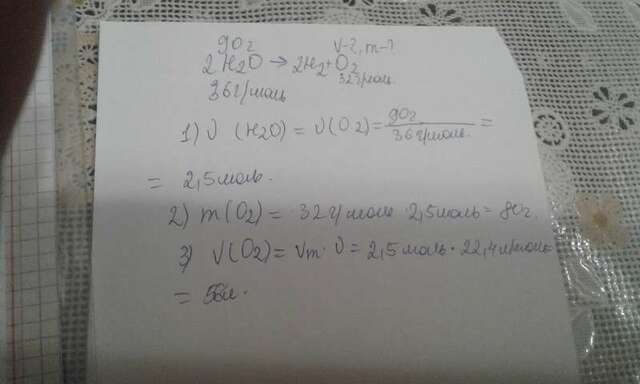 90г V-?, m-?
2H2O → 2H2+O2
36г/моль 32г/моль
1) ν (H2O) = ν(O2) = 90г / 36г/моль =
= 2,5моль.
2) m(O2) = 32г/моль · 2,5моль = 80г.
3) V(O2) = Vm · ν = 2,5 моль · 22,4л/моль=
= 56л.